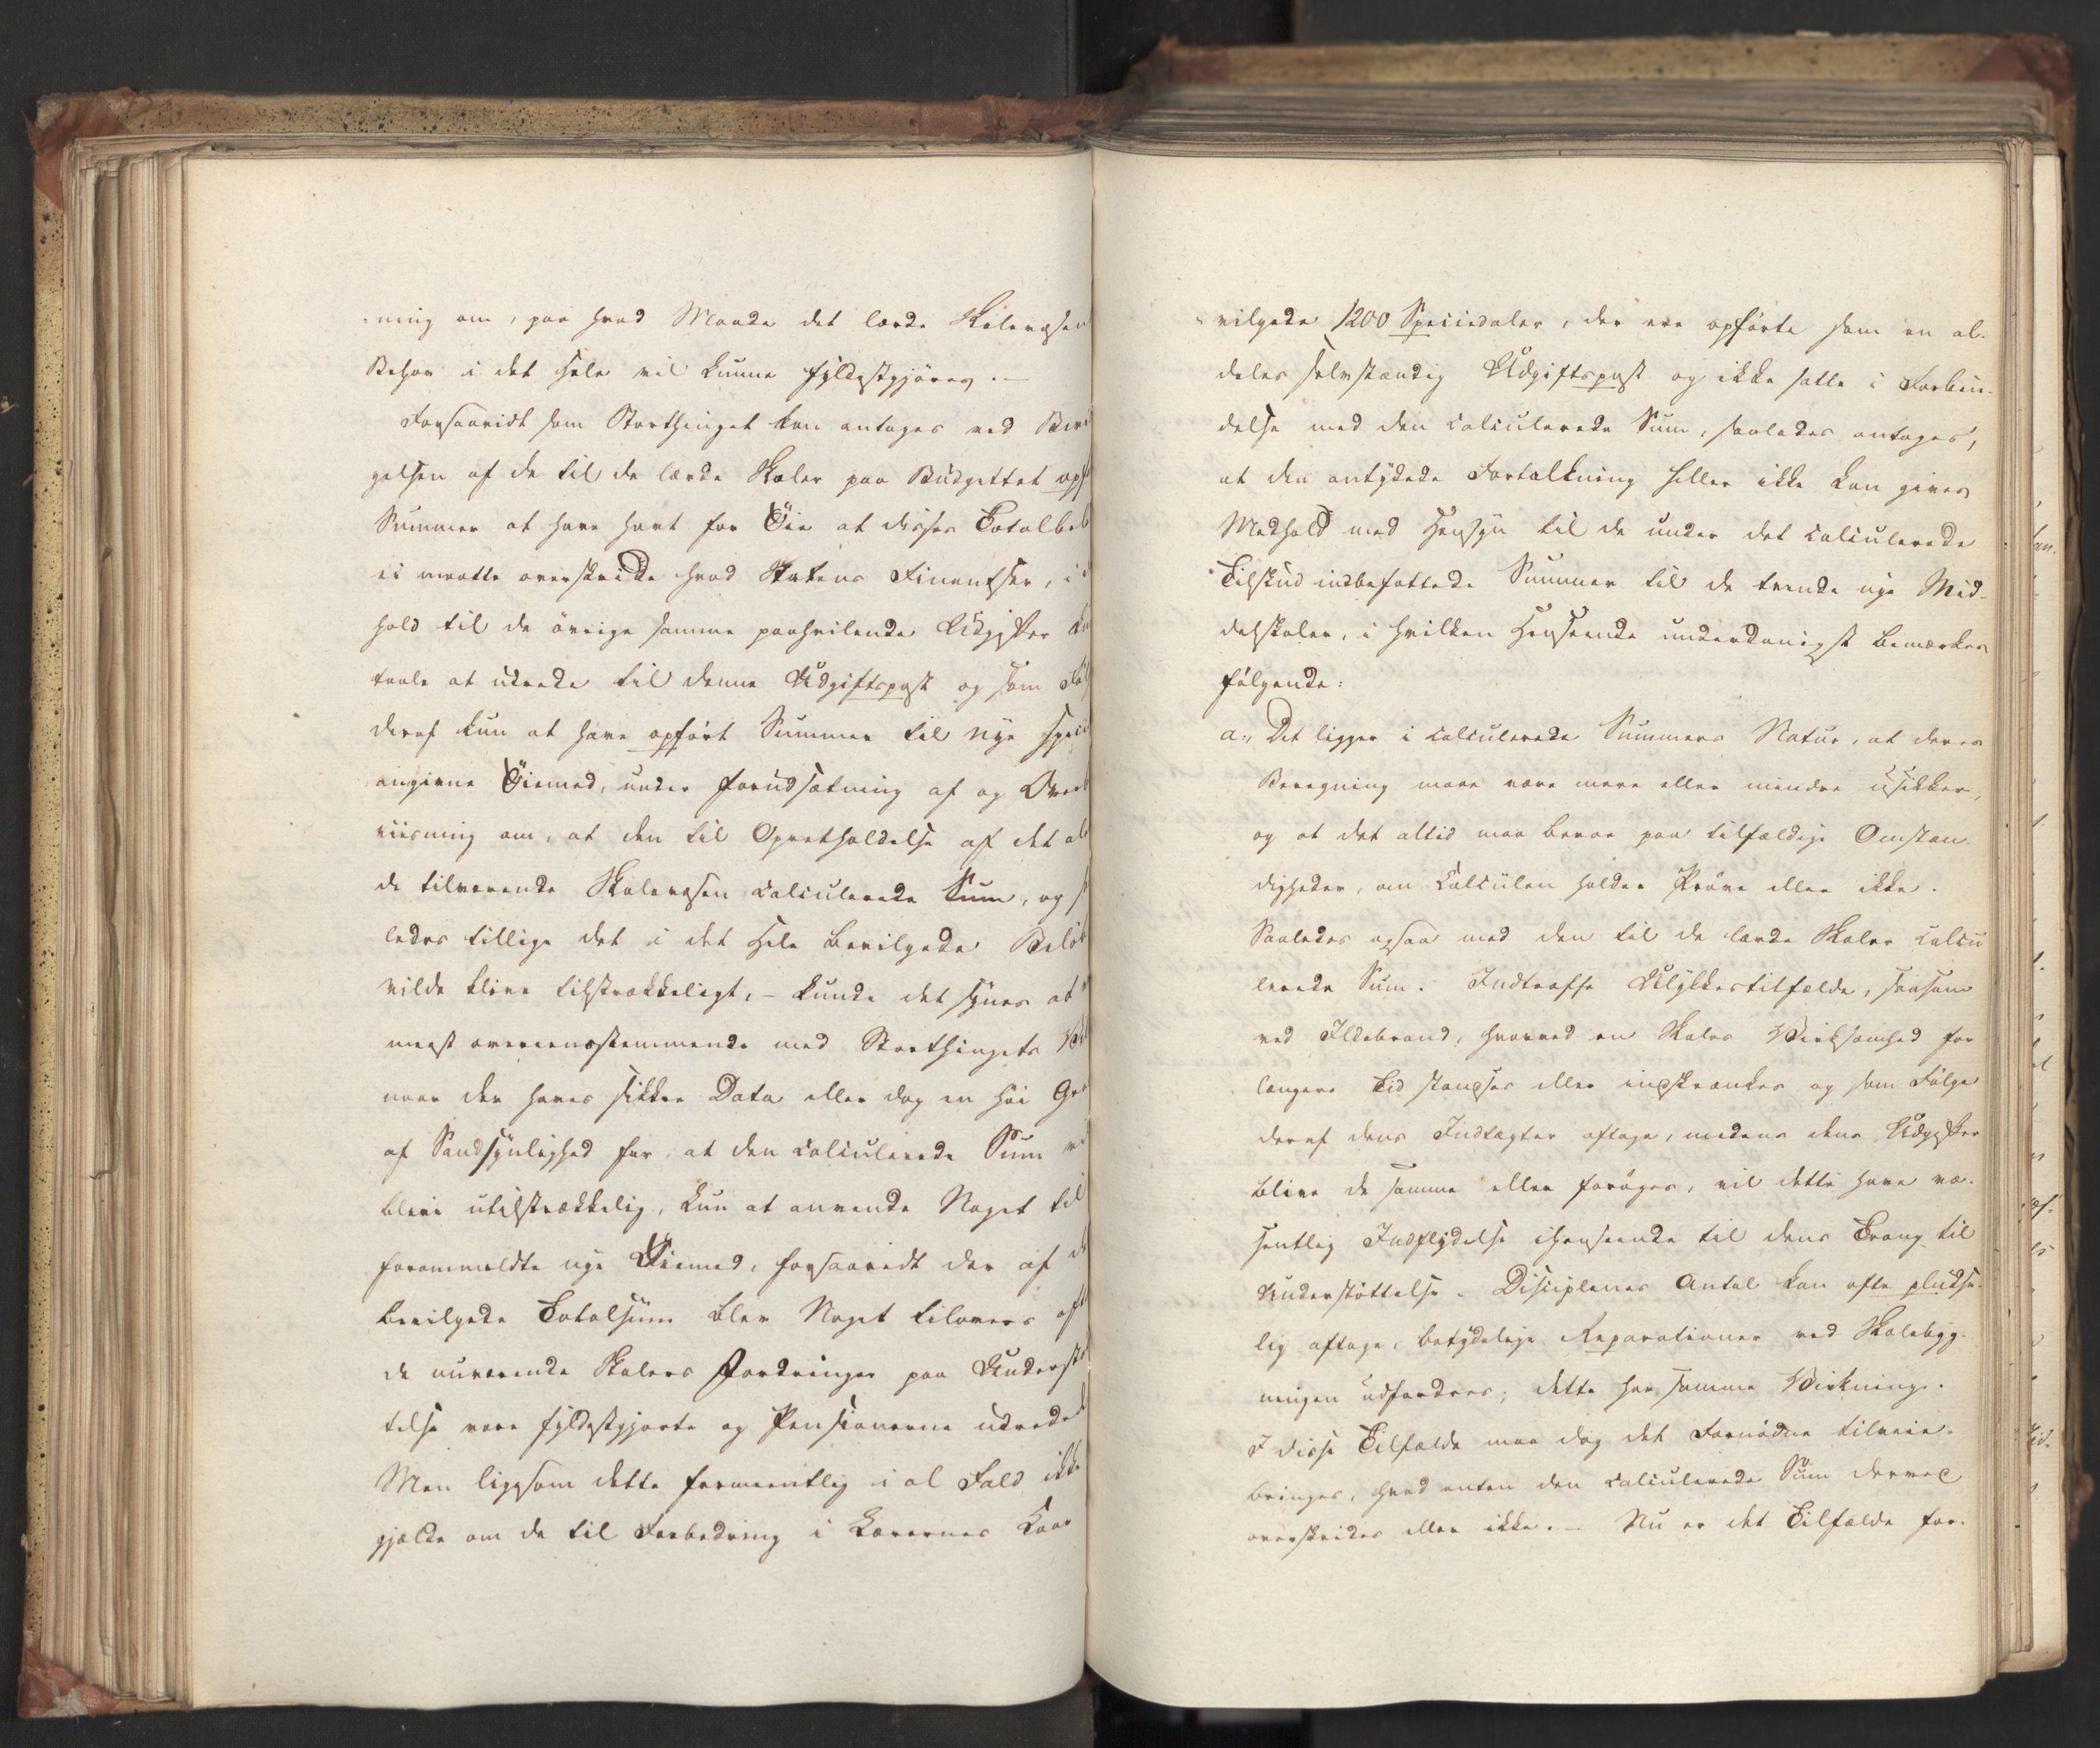 -ning om, paa hvad Maade det lærde Skolevæsen
Behov i det Hele vil kunne fyldestgjøres. —
Forsaavidt som Storthinget kan antages ved Bevil
gelsen af de til de lærde Skoler paa Budgettet opf
Summer at have havt for Øie at disses Totalbelø
ei maatte overskride hvad Statens Finantser, i
hold til de øvrige samme paahvilende Udgifter
taale at udrede til denne Udgiftspost og som Føl
deraf kun at have opført Summer til nye speci
angivne Øiemed, under Forudsætning af og Over
viisning om, at den til Opretholdelse af det al
de tilværende Skolevæsen calculerede Sum, og s
ledes tillige det i det Hele bevilgede Beløb
vilde blive tilstrækkeligt, – kunde det synes at
meest overeensstemmende med Storthingets
naar der haves sikker Data eller dog en høi Gra
af Sandsynlighed for, at den calculerede Sum vil
blive utilstrækkelig, kun at anvende Noget til
forommeldte nye Øiemed, forsaavidt der af d
bevilgede Totalsum blev Noget tilovers eft
de nuværende Skolers Fordringer paa Understøt
telse vare fyldestgjorte og Pensionerne udrede
Men ligesom dette formeentlig i al Fald ikke
gjælde om de til Forbedring i Lærernes Kaar
-vilgede 1200 Speciedaler, der ere opførte som en al-
deles selvstændig Udgiftspost og ikke satte i Forbin-
delse med den calculerede Sum, saaledes antages,
at den antydede Fortolkning heller ikke kan gives
Medhold med Hensyn til de under det calculerede
Tilskud indbefattede Summer til de trende nye Mid-
delskoler, i hvilken Henseende underdanigst bemærkes
følgende:
a., Det ligger i calculerede Summers Natur, at deres
Beregning maae være mere eller mindre usikker,
og at det altid maa beroe paa tilfældige Omstæn-
digheder, om Calculen holder Prøve eller ikke.
Saaledes ogsaa med den til de lærde Skoler calcu
lerede Sum. Indtræffe Ulykkestilfælde, saasom
ved Ildebrand, hvorved en Skoles Virksomhed for
længere Tid standses eller indskrænkes og som Følge
deraf dens Indtægter aftage, medens dens Udgifter
blive de samme eller forøges, vil dette have væ-
sentlig Indflydelse ihenseende til dens Trang til
Understøttelse. Disciplenes Antal kan ofte pludse-
lig aftage, betydelige Reparationer ved Skolebyg-
ningen udfordres; dette har samme Virkning.
I disse Tilfælde maa dog det Fornødne tilveie-
bringes, hvad enten den calculerede Sum derved
overskrides eller ikke. – Nu er det Tilfælde for-